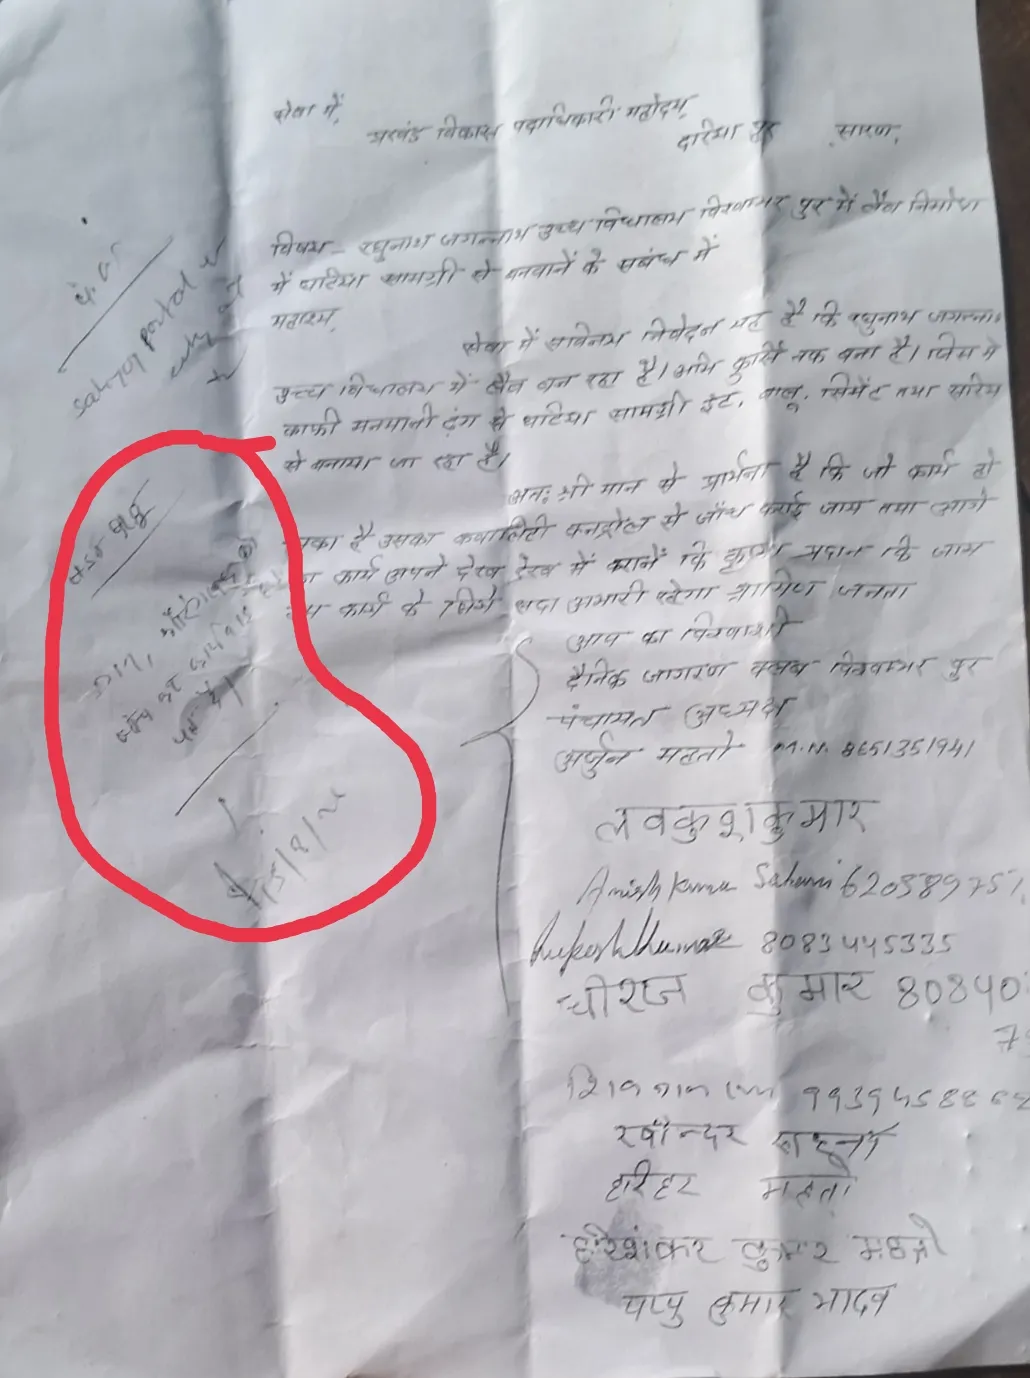 सेवा में,
प्रखंड विकास पदाधिकारी महोदय,
दरिया पुर सारण,
विषय - रघुनाथ जगन्नाथ उच्च विद्यालय विश्वम्भर पुर में लैव निर्माण
में घटिया सामग्री से बनवानें के सबंध में
महाशय,
सेवा में सविनय निवेदन यह है कि रघुनाथ जगन्ना
उच्च विद्यालय में लैव बन रहा है। अभि कुर्सि तक बना है। जिस में
काफी मनमानी ढ़ंग से घटिया सामग्री इंट, बालू, सिमेंट तथा सरिया
से बनाया जा रहा है।
अतः श्री मान से प्रार्थना है कि जो कार्य हो
चुका है उसका क्वालिटी कनट्रोल से जाँच कराई जाय तथा आगे
का कार्य अपने देख रेख में करानें कि कृपा प्रदान कि जाय
कार्य के लिये सदा अभारी रहेगा ग्रामिण जनता
आप का विश्वासी
दैनिक जागरण क्लब विश्वम्भर पुर
पंचायत अध्यक्ष
अर्जुन महतो M.N. 8651351941
लवकुश कुमार
Amish Kumar Sahani 620589757
Rukesh Kumar 8083445335
धीरज कुमार 80840
7
99394588
रवीन्दर
हरिहर महतो
हरिशंकर कुमार महतो
पप्पु कुमार यादव
Sahyog portal
जाँच कर